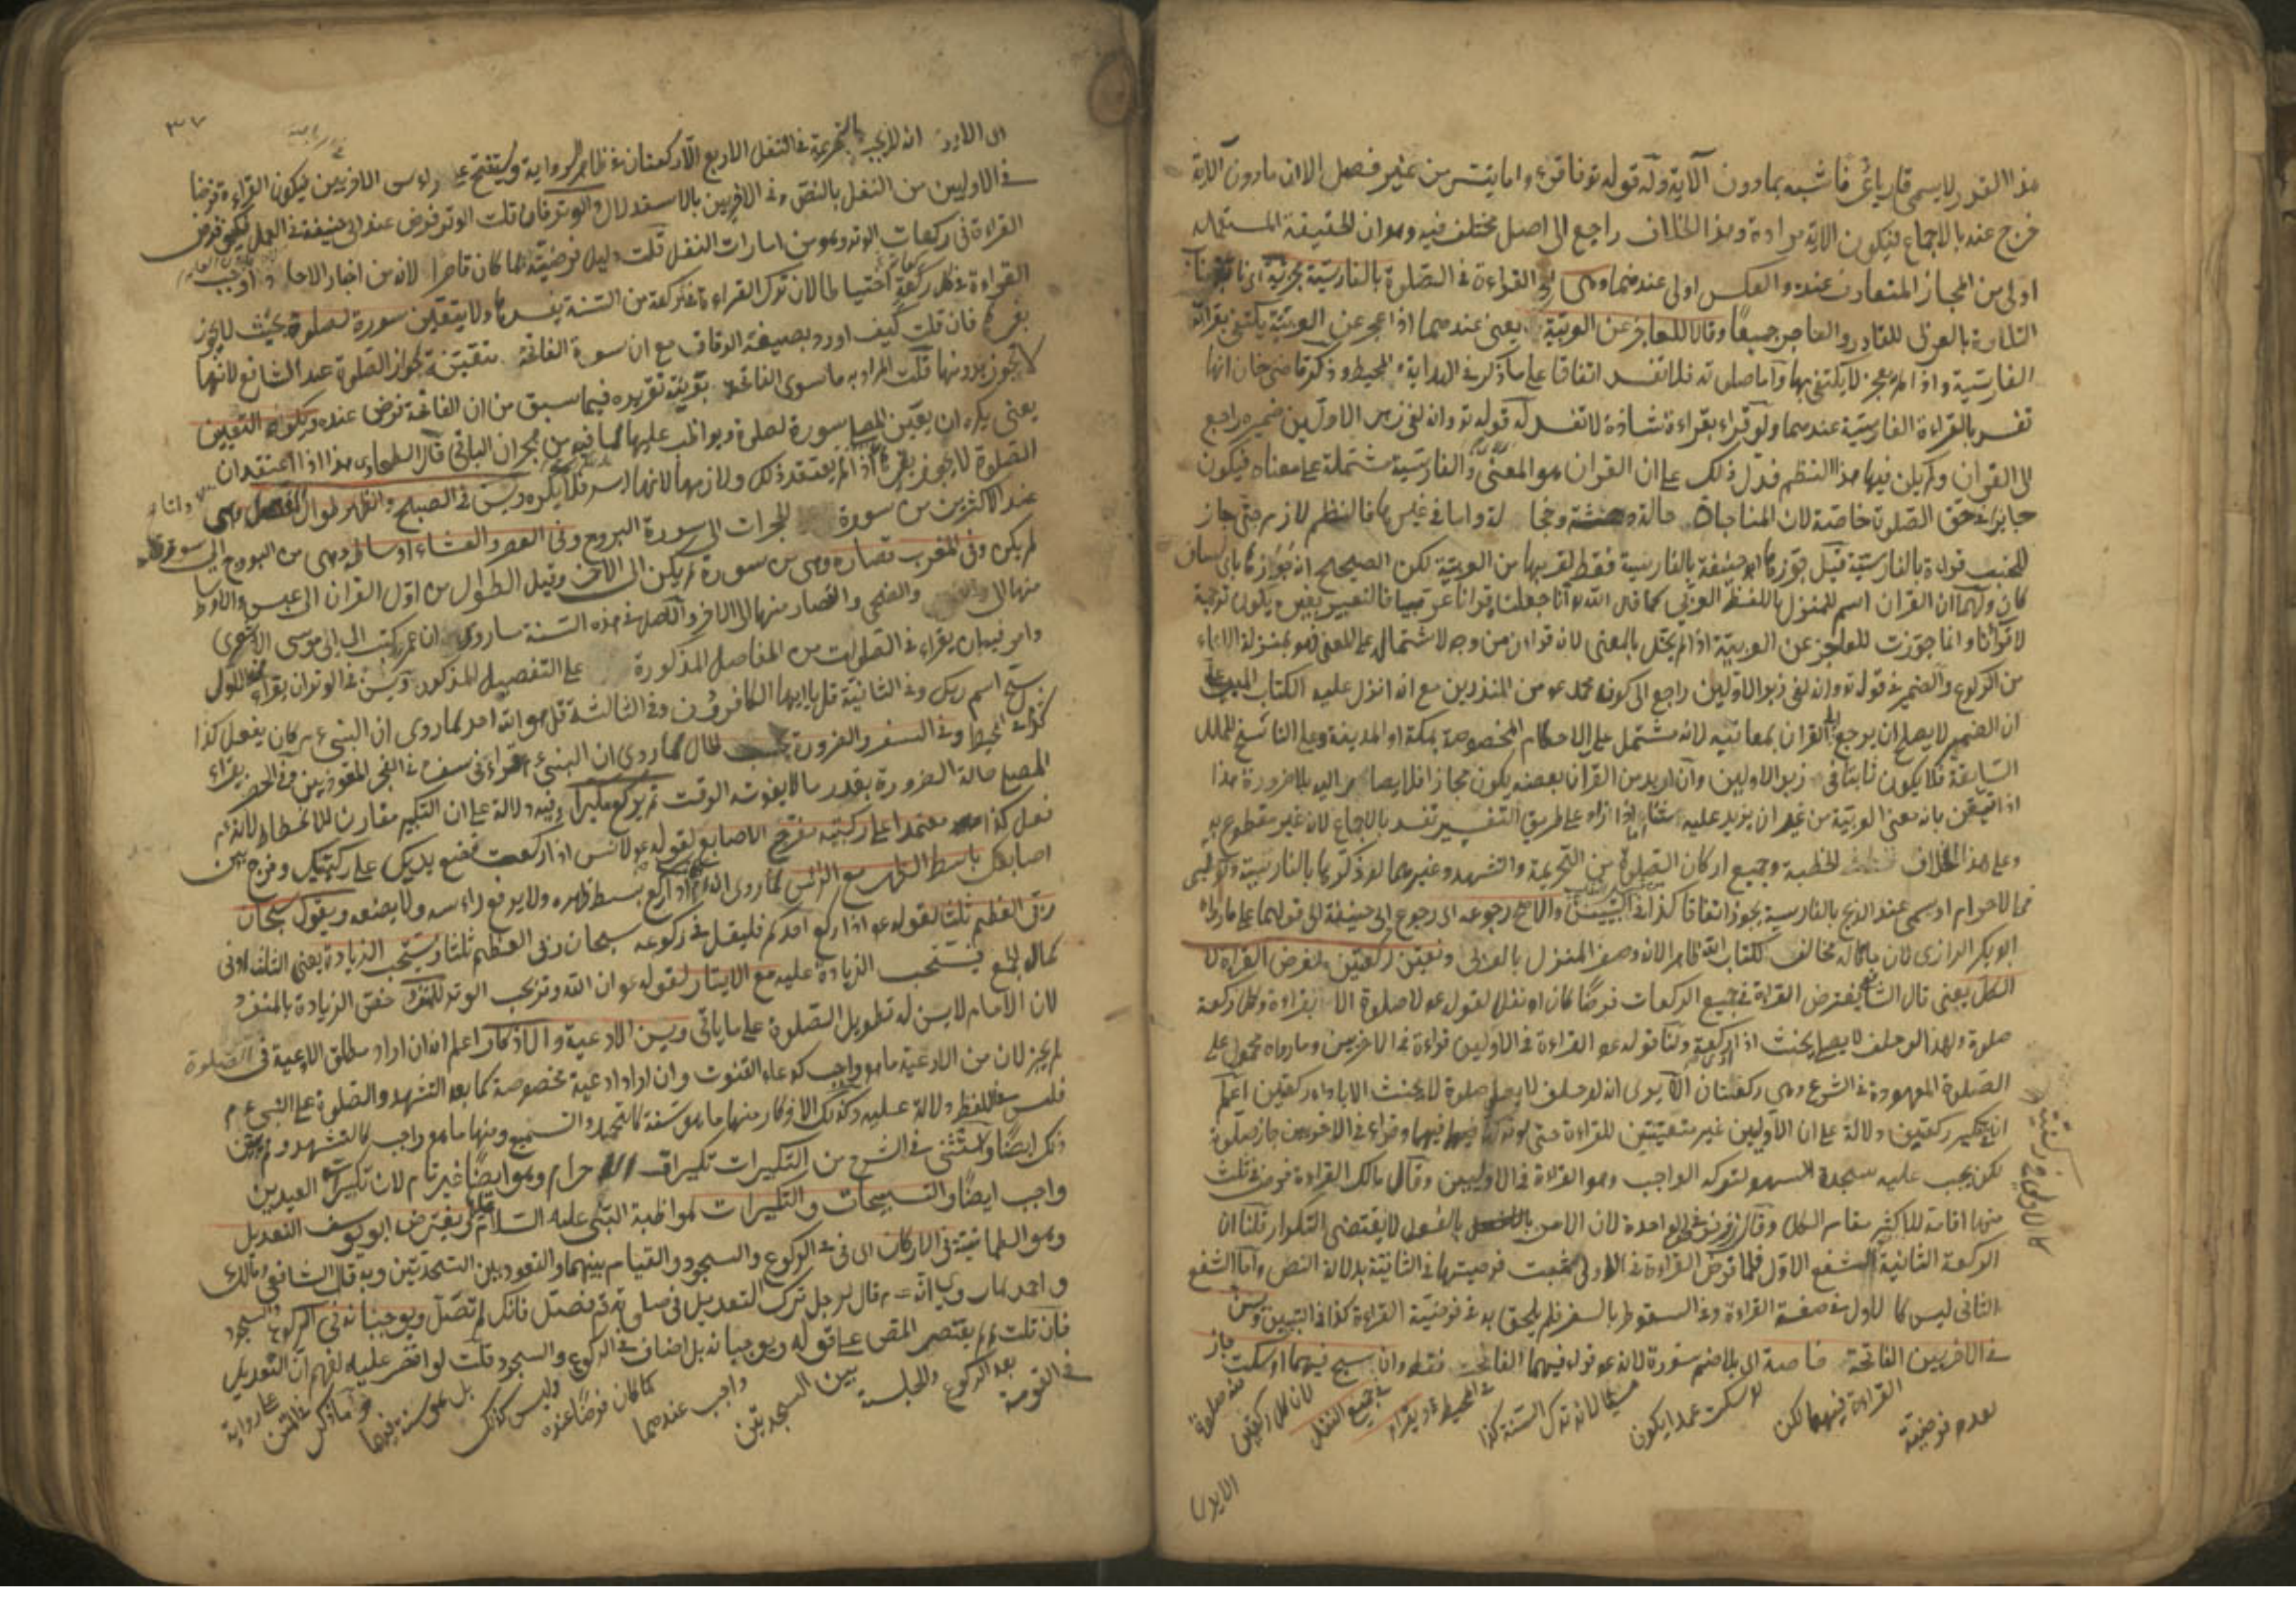 هذا القدر لا يسمى قارياً عرفا فاشبه بما دون الآية وله قوله تعالى فاقرؤا ما تيسر من غير فصل الا ان ما دون الآية
خرج عنده بالاجماع فيكون الاية مرادة وهذا الخلاف راجع الى اصل مختلف فيه وهو ان الحقيقة المستعملة
اولى من المجاز المتعارف عنده والعكس اولى عندهما وهي اى القراءة في الصلوة بالفارسية مجزئة
التلاوة بالعربي للقادر والعاجز جميعا وقالا للعاجز عن العربية يعنى عندهما اذا عجز عن العربية يكتفى بقراءة
الفارسية واذا لم يعجز لا يكتفى بها واما صلوته فلا تفسد اتفاقا على ما ذكر في الهداية والمحيط وذكر قاضى خان انها
تفسد بالقراءة الفارسية عندهما ولو قراء بقراءة شاذة لا تفسد له قوله تعالى وانه لفى زبر الاولين ضميره راجع
الى القران ولم يكن فيها هذا النظم فدل ذلك على ان القران هو المعنى والفارسية مشتملة على معناه فيكون
جايزا في حق الصلوة خاصة لان المناجاة حالة دهشة واما في غيرها فالنظم لازم حتى جاز
للجنب قراءة بالفارسية قيل جوزها ابو حنيفة بالفارسية فقط لقربها من العربية لكن الصحيح انه جوزها باى لسان
كان ولهما ان القران اسم للمنزل باللفظ العربي كما قال الله تعالى انا جعلناه قرانا عربيا فالتعبير بغيره يكون ترجمة
لا قرآنا وانما جوزت للعاجز عن العربية اذا لم يخل بالمعنى لانه قران من وجه لاشتماله على المعنى فهو بمنزلة الايماء
من الركوع والضمير في قوله تعالى وانه لفى زبر الاولين راجع الى كونه محمد من المنذرين مع انه انزل عليه الكتاب المبين على
ان الضمير لا يصلح ان يرجع الى القران بمعانيه لانه مشتمل على الاحكام المخصوصة بمكة او المدينة وعلى الناسخ للملل
السابقة فلا يكون ثابتا في زبر الاولين وان اريد من القران بعضه يكون مجازا فلا يصار اليه بلا ضرورة هذا
اذا تيقن بانه معنى العربية من غير ان يزيد عليه شيئا اما اذا زاد على طريق التفسير تفسد بالاجماع لانه غير مقطوع به
وعلى هذا الخلاف الخطبة وجميع اركان الصلوة من التحريمة والتشهد وغيرهما لو ذكرها بالفارسية ولو لبى
في الاحرام او سمى عند الذبح بالفارسية يجوز اتفاقا كذا في التبيين والاصح رجوعه اى رجوع ابى حنيفة الى قولهما على ما رواه
ابو بكر الرازى لان ما قاله مخالف لكتاب الله ظاهرا لانه وصف المنزل بالعربى ونعين ركعتين لفرض القراءة لا
الكل يعنى قال الشافعي يفترض القراءة في جميع الركعات فرضا كان او نفلا لقوله لا صلوة الا بقراءة وكل ركعة
صلوة ولهذا لو حلف لا يصلى يحنث اذا اتى ركعة ولنا قوله القراءة في الاوليين قراءة في الاخريين وما رواه محمول على
الصلوة المعهودة في الشرع وهى ركعتان الا يرى انه لو حلف لا يصلى صلوة لا يحنث الا باداء ركعتين اعلم
ان في تنكير ركعتين دلالة على ان الاوليين غير متعينتين للقراءة حتى لو تركها فيهما وقراء في الاخريين جاز صلوته
لكن يجب عليه سجدة السهو لتركه الواجب وهو القراءة في الاوليين وقال مالك القراءة فرض في ثلث
منها اقامة للاكثر مقام الكل وقال زفر في الواحدة لان الامر بالفعل لا يقتضى التكرار قلنا ان
الركعة الثانية الشفع الاول فلما فرض القراءة في الاولى ثبت فرضيتها في الثانية بدلالة النص واما الشفع
الثانى ليس كالاول في صفة القراءة وفي السقوط بالسفر فلم يلحق به في فرضية القراءة كذا في التبيين وسن
في الاخريين الفاتحة خاصة اى بلا ضم سورة لانه قراء فيهما الفاتحة فقط وان سبح فيهما او سكت جاز
لعدم فرضية القراءة فيهما لكن لو سكت عمدا يكون مسيئا لانه ترك السنة كذا في المحيط ويقراء في جميع النفل لان كل ركعتين منه صلوة
الا يرى
٣٧
انه لا يجب بالتحريمة في النفل الاربع الا ركعتان في ظاهر الرواية ويستفتح على راس الاخريين فيكون القراءة فرضا
في الاوليين من النفل بالنص وفي الاخريين بالاستدلال والوتر فان قلت الوتر فرض عند ابى حنيفة في العمل فكيف فرض
القراءة في ركعات الوتر وهو من امارات النفل قلت دليل فرضيته لما كان قاصرا لانه من اخبار الاحاد اوجب
القراءة في كل ركعة احتياطا لان ترك القراءة في ركعة من السنة يفسدها ولا يتعين سورة لصلوة بحيث لا يجوز
بغيرها فان قلت كيف اورد بصيغة الوفاق مع ان سورة الفاتحة متعينة لجواز الصلوة عند الشافعي لانها
لا تجوز بدونها قلت المراد به ما سوى الفاتحة بقرينة تقريره فيما سبق من ان الفاتحة فرض عنده ويكره التعيين
يعنى يكره ان يعين المصلى سورة لصلوة ويواظب عليها لما فيه من هجران الباقى قال الطحاوى هذا اذا اعتقد ان
الصلوة لا يجوز بغيرها اما اذا لم يعتقد ذلك ولازمها لانها ايسر فلا يكره وسن في الصبح والظهر طوال المفصل وهى
عند الاكثرين من سورة الحجرات الى سورة البروج وفي العصر والعشاء اوساطه وهى من البروج الى سورة
لم يكن وفي المغرب قصاره وهى من سورة لم يكن الى الاخر وقيل الطوال من اول القران الى عبس والاوساط
منها الى والضحى والقصار منها الى الاخر والاصل في هذه السنة ما روى ان عمر كتب الى ابى موسى الاشعرى
وامر فيه بان يقراء في الصلوات من المفاصل المذكورة على التفصيل المذكور وسن في الوتر ان يقراء في الاولى
سبح اسم ربك وفي الثانية قل يا ايها الكافرون وفي الثالثة قل هو الله احد لما روى ان النبى كان يفعل كذا
كذا في المحيط وفي السفر والضرورة بحسب الحال لما روى ان النبى قراء في سفره في الفجر المعوذتين وفي الحضر يقراء
المصلى حالة الضرورة بقدر ما لا يفوته الوقت ثم يركع مكبرا وفيه دلالة على ان التكبير مقارن للانحطاط لانه
فعل كذا معتمدا على ركبتيه مفرج الاصابع لقوله لانس اذا ركعت فضع يديك على ركبتيك وفرج بين
اصابعك باسط الظهر مع الراس لما روى انه اذا ركع بسط ظهره ولا يرفع راسه ولا يضعه ويقول سبحان
ربى العظيم ثلثا لقوله اذا ركع احدكم فليقل في ركوعه سبحان ربى العظيم ثلثا ويستحب الزيادة يعنى الثلث ادنى
كمال الجمع فيستحب الزيادة عليه مع الايتار لقوله ان الله وتر يحب الوتر للمنفرد خص الزيادة بالمنفرد
لان الامام لا يسن له تطويل الصلوة على ما ياتى ويسن الادعية والاذكار اعلم انه ان اراد مطلق الادعية في الصلوة
لم يجز لان من الادعية ما هو واجب كدعاء القنوت وان اراد ادعية مخصوصة كما بعد التشهد والصلوة على النبى
فليس في اللفظ دلالة عليه وكذلك الاذكار منها ما هو سنة كالتحميد والتسميع ومنها ما هو واجب كالتشهد
ذلك ايضا واستثنى في الشرح من التكبيرات تكبيرات الاحرام وهو ايضا غير تام لان تكبيرات العيدين
واجب ايضا والتسبيحات والتكبيرات لمواظبة النبى عليه السلام ويفترض ابو يوسف التعديل
وهو الطمانينة في الاركان اى في الركوع والسجود والقيام بينهما والقعود بين السجدتين وبه قال الشافعى ومالك
واحمد لما روى انه قال لرجل ترك التعديل في صلوته قم فصل فانك لم تصل ويوجبانه في الركوع والسجود
فان قلت لم لم يقتصر المص على قوله ويوجبانه بل اضاف في الركوع والسجود قلت لو اقتصر عليه لفهم ان التعديل
في القومة بعد الركوع والجلسة بين السجدتين واجب عندهما كما كان فرضا عنده وليس كذلك بل هو سنة فيهما وما ذكر في المتن على رواية